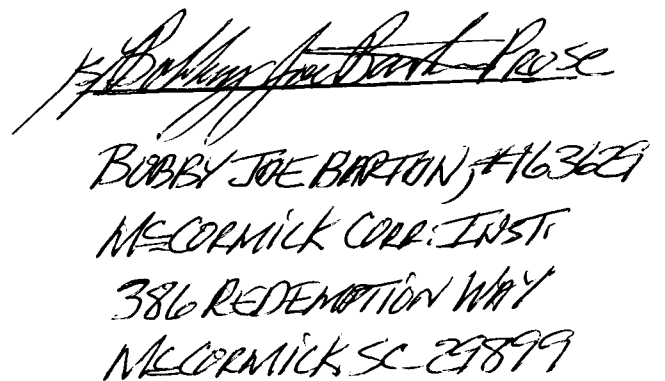 s/Bobby Joe Barton Prose
BOBBY JOE BARTON, #163629
McCORMICK CORR. INST.
386 REDEMPTION WAY
McCORMICK, SC 29899